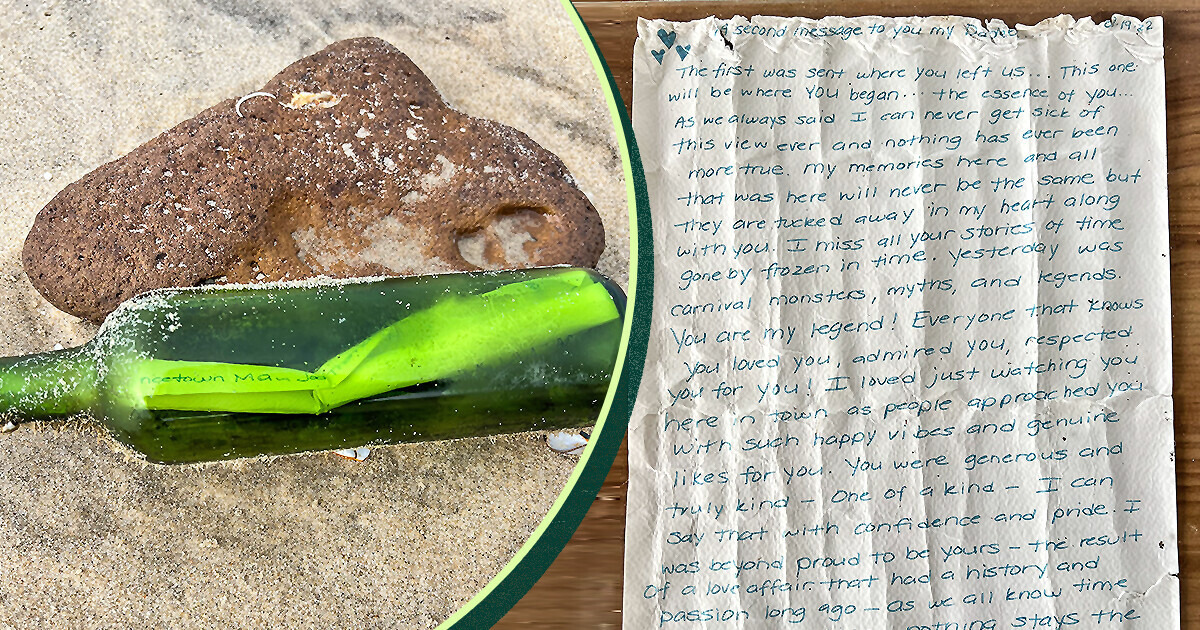 ncetown Man
second message to you my
The first was sent where you left us... This one
will be where YOU began... the essence of you...
As we always said I can never get sick of
this view ever and nothing has ever been
more true. my memories here and all
that was here will never be the same but
they are tucked away in my heart along
with you. I miss all your stories of time
gone by frozen in time. Yesterday was
carnival monsters, myths, and legends.
You are my legend! Everyone that knows
you loved you, admired you, respected
you for you! I loved just watching you
here in town as people approached you
with such happy vibes and genuine
likes for you. You were generous and
truly kind - one of a kind - I can
say that with confidence and pride. I
was beyond proud to be yours - the result
of a love affair that had a history and
passion long ago - as we all know time
nothing stays the